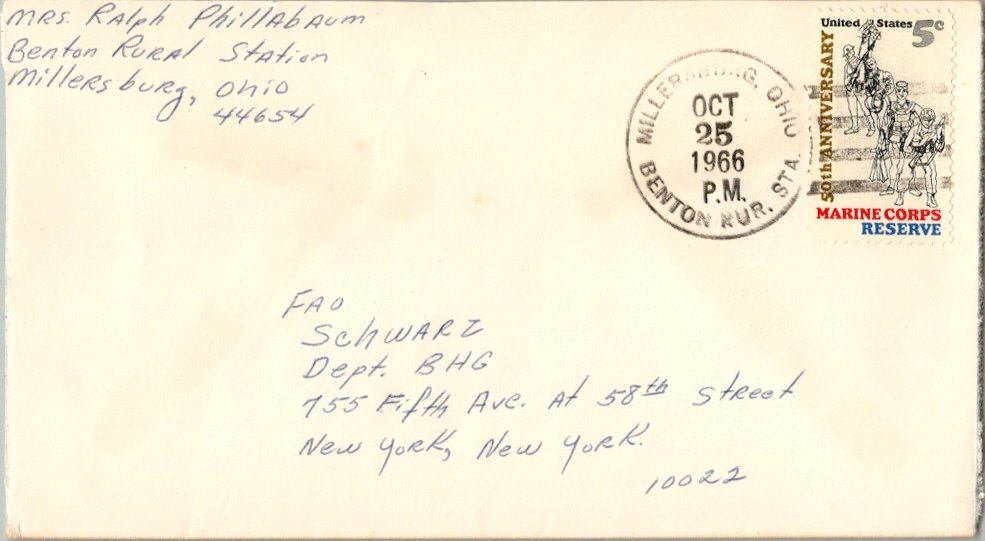 Mrs. Ralph Phillabaum
Benton Rural Station
Millersburg, Ohio
44654
MILLERSBURG, OHIO
OCT
25
1966
P.M.
BENTON RUR. STA.
United States 5c
50th ANNIVERSARY
MARINE CORPS
RESERVE
FAO
Schwarz
Dept. BHG
755 Fifth Ave. At 58th Street
New York, New York.
10022